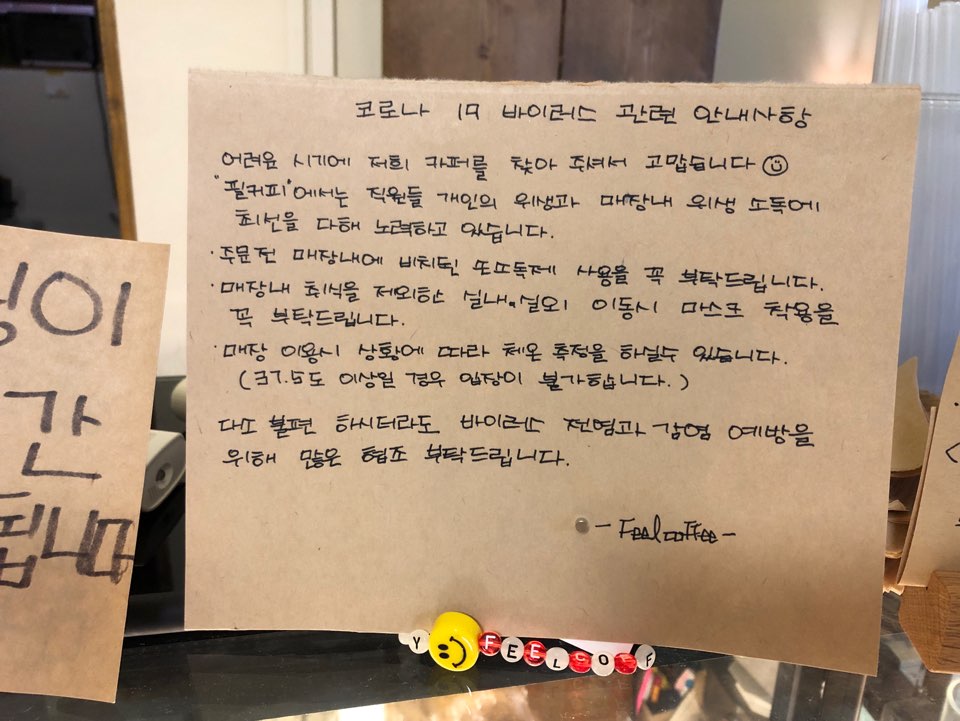 코로나 19 바이러스 관련 안내사항
어려운 시기에 저희 카페를 찾아 주셔서 고맙습니다
"필커피"에서는 직원들 개인의 위생과 매장내 위생 소독에
최선을 다해 노력하고 있습니다.
· 주문전 매장내에 비치된 손소독제 사용을 꼭 부탁드립니다.
· 매장내 취식을 제외한 실내, 실외 이동시 마스크 착용을
꼭 부탁드립니다.
· 매장 이용시 상황에 따라 체온 측정을 하실수 있습니다.
(37.5도 이상일 경우 입장이 불가합니다.)
다소 불편 하시더라도 바이러스 전염과 감염 예방을
위해 많은 협조 부탁드립니다.
- Feelcoffee -
Y FEELCOF
이
간
됩니다